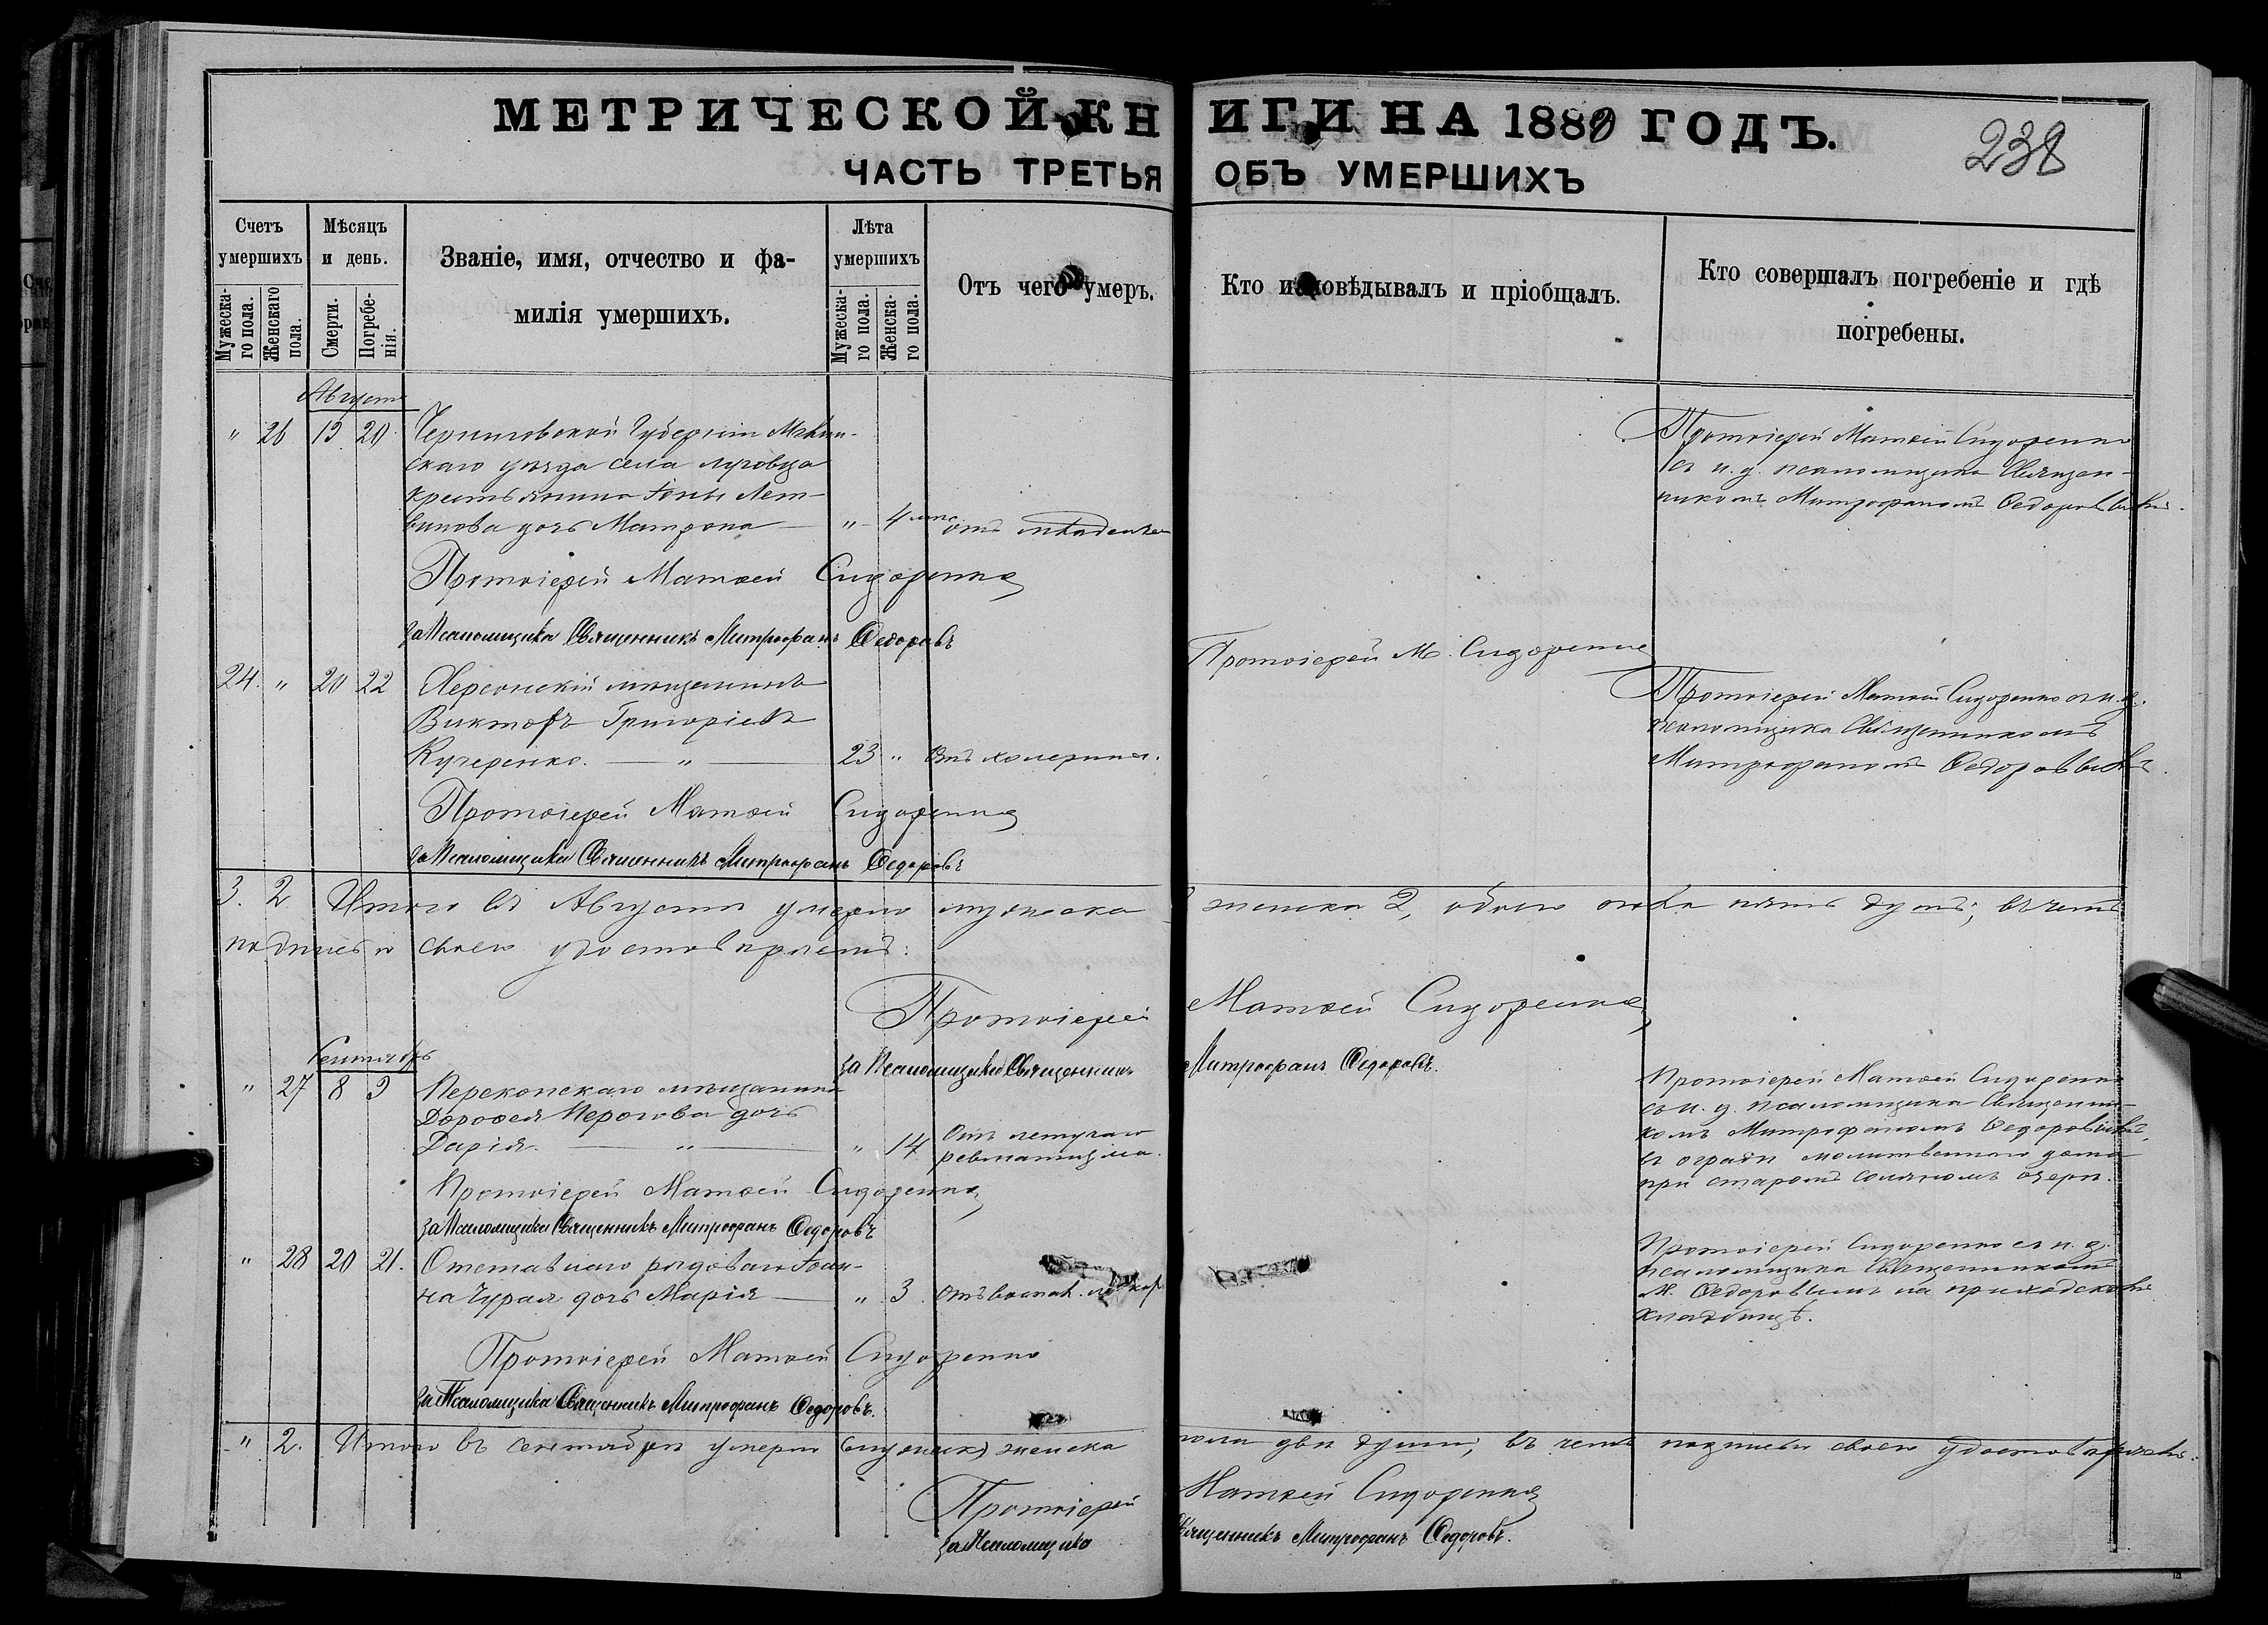 МЕТРИЧЕСКОЙ КНИГИ НА 1880 ГОДЪ.
238
ЧАСТЬ ТРЕТЬЯ ОБЪ УМЕРШИХЪ
Счетъ умершихъ
Мужескаго пола.
Женскаго пола.
Мѣсяцъ и день.
Смерти.
Погребенія.
Званіе, имя, отчество и фамилія умершихъ.
Лѣта умершихъ
Мужескаго пола.
Женскаго пола.
Отъ чего умеръ.
Кто исповѣдывалъ и пріобщалъ.
Кто совершалъ погребеніе и гдѣ погребены.
Августъ
" 26 19 20 Черниговской Губерніи Мглин-
скаго уѣзда села Луговца
крестьянина Іоны Лет-
винова дочь Матрона " 4 отъ младенч
Протоіерей Матѳей Сидоренко
съ и. д. псаломщика Священ-
никомъ Митрофаномъ Ѳедоровымъ.
Протоіерей Матѳей Сидоренко
за Псаломщика Священникъ Митрофанъ Ѳедоровъ
24. " 20 22 Херсонскій мѣщанинъ
Викторъ Григоріевъ
Кучеренко. " 23 " Отъ холерины.
Протоіерей М. Сидоренко
Протоіерей Матѳей Сидоренко съ и. д.
псаломщика Священникомъ
Митрофаномъ Ѳедоровымъ.
Протоіерей Матѳей Сидоренко
за Псаломщика Священникъ Митрофанъ Ѳедоровъ
3. 2 Итого въ Августѣ умерло мужеска 3 женска 2, обоего пола пять душъ; въ чемъ
подписью своею удостовѣряемъ:
Протоіерей Матѳей Сидоренко
за Псаломщика Священникъ Митрофанъ Ѳедоровъ.
Сентябрь
" 27 8 9 Перекопскаго мѣщанина
Дороѳея Перогова дочь
Дарія. " " 14 Отъ летучаго
ревматизма.
Протоіерей Матѳей Сидоренко
съ и. д. псаломщика Священни-
комъ Митрофаномъ Ѳедоровымъ,
въ оградѣ молитвеннаго дома
при старомъ соляномъ озерѣ.
Протоіерей Матѳей Сидоренко
за Псаломщика Священникъ Митрофанъ Ѳедоровъ
" 28 20 21. Отставнаго рядоваго Іоан-
на Чурая дочь Марія " 3 Отъ воспал.
Протоіерей Сидоренко съ и. д.
псаломщика Священникомъ
М. Ѳедоровымъ на приходскомъ
кладбищѣ.
Протоіерей Матѳей Сидоренко
за Псаломщика Священникъ Митрофанъ Ѳедоровъ.
" 2. Итого въ сентябрѣ умерло (мужеск) женска пола двѣ души, въ чемъ подписью своею удостовѣряемъ:
Протоіерей Матѳей Сидоренко
за Псаломщика Священникъ Митрофанъ Ѳедоровъ.